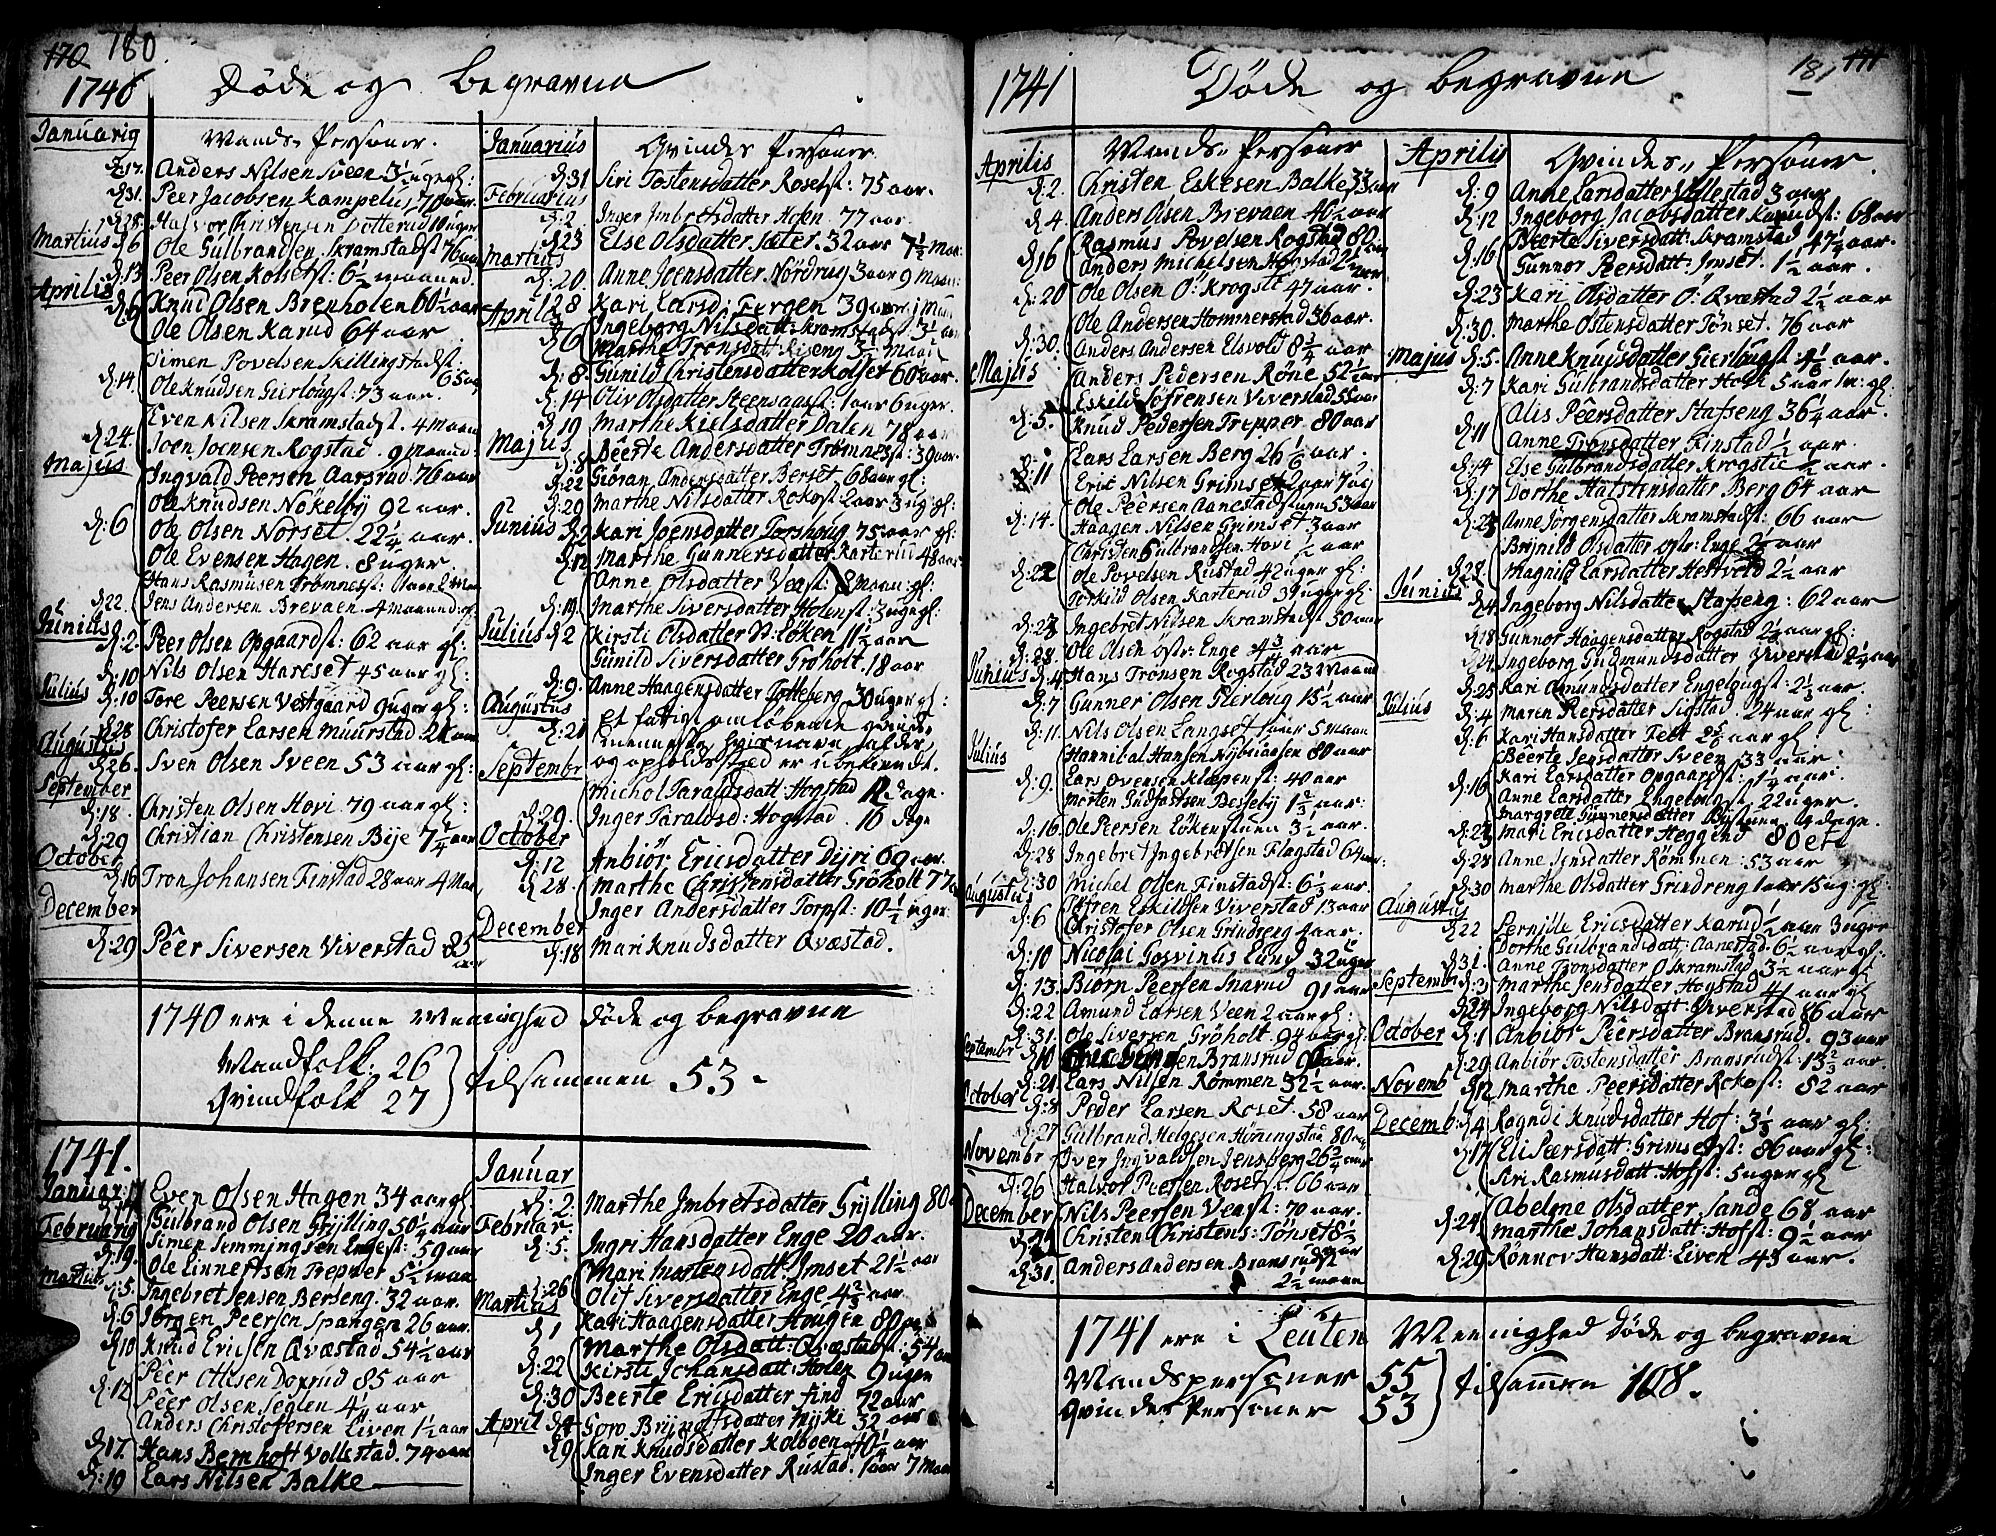 170 180
1740 Døde og begravne
Januarig
Mands Personer.
d:17. Anders Nilsen Sveen 3½ uge gl:
d:31. Peer Jacobsen Kampelus 70 aar
d:28. Halvor Christensen Dotterud 10 uger
Martius d:6 Ole Gulbrandsen Skramstadst: 76 aar
d:13 Peer Olsen Kolsetst: 6½ maaned.
Aprilis
d:6 Knud Olsen Brenholen 60½ aar
Ole Olsen Karud 64 aar
Simen Povelsen Skillingstadst: 65 aar
d:14. Ole Knudsen Gierlougst: 73 aar.
Even Nilsen Skramstadst. 4 maan
d:24. Joen Joensen Rogstad 9 maand
Majus
Ingvald Peersen Aarsrud 76 aar
Ole Knudsen Nökelby 92 aar.
d:6 Ole Olsen Norset 22¼ aar.
Ole Evensen Hagen. 8 uger.
Hans Rasmusen Trømnest: 1 aar 2 Maan
d:22. Jens Andersen Brevaen 4 maaned: gl:
Junius d:2. Peer Olsen Opgaardst: 62 aar gl:
d:10 Nils Olsen Harlset 45 aar gl:
Julius d:10 Tore Peersen Vestgaard 9 uger gl:
d:28 Christofer Larsen Muurstad 21 aar
Augustus
d:26. Sven Olsen Sveen 53 aar gl:
September
d:18. Christen Olsen Hovi 79 aar gl:
d:29 Christian Christensen Bije 7¼ aar
October
d:16 Tron Johansen Finstad 28 aar 4 Maa
December
d:29 Peer Siversen Viverstad 25 aar
Januarius
Qvindes Personer.
d:31 Siri Tostensdatter Rosetst: 75 aar.
Februarius
d:2 Inger Imbretsdatter Holen 77 aar
d:23 Else Olsdatter Sæter. 32 aar 7½ Maan
Martius
d:20. Anne Joensdatter Nördrug 3 aar 9 Maan:
d:28 Kari Larsd: Fergen 39 aar 1 Maan
Aprilis
d:6 Ingeborg Nilsdatt: Skramstadst: 3½ aar
Marthe Tronsdatt: Riseng 3½ Maan
d:8. Gunild Christensdatter Kolset 60 aar.
d:14 Oliv Olsdatter Steensaasst: 1 aar 6 uger.
d:19 Marthe Kielsdatter Dalen 78 aar
Majus
d:8 Beerte Andersdatter Trømnest: 39 aar.
d:22 Giöran Andersdatter Berset 68 aar gl:
d:29 Marthe Nilsdatter Rokost 2 aar 3 ug: gl:
Junius d:2 Kari Joensdatter Torshoug 75 aar gl:
d:12 Marthe Gunnersdatter Karterud 48 aar
Anne Olsdatter Veast: 8 maan: gl:
d:19. Marthe Siversdatter Holenst: 3 uge gl:
Julius d:2 Kirsti Olsdatter N: Løken 11½ aar
Gunild Siversdatter Gröholt. 18 aar
d:9. Anne Haagensdatter Totteberg 30 uger gl:
Augustus
d:21 Et fattigt omløbende qvinde
menneske hvis navn, alder
og opholdssted er ubekiendt.
Septembr
Michol Taraldsdatt Hogstad 12 dage.
d:29. Inger Taraldsd: Hogstad. 16 dage
October
d:12 Anbiør Ericsdatter Dijri 69 aar.
d:28. Marthe Christensdatter Gröholt 77
Inger Andersdatter Torpst: 10½ uger
December
d:18 Mari Knudsdatter Qvæstad.
1740 ere i denne Menighed døde og begravne
Mandfolk: 26
Qvindfolk 27
tilsammen 53.
1741.
Januar: Even Olsen Hagen 34 aar gl
Februarig Gulbrand Olsen Grylling 50¼ aar
d:19. Simen Semmingsen Engest: 59 aar
Ole Linnertsen Trepper 5½ maan
Martius d:5. Ingebret Jensen Berseng. 32 aar.
d:6 Jørgen Peersen Spangen 26 aar.
d:10 Knud Ericsen Qvæstad 54½ aar
Peer Ottesen Doprud 85 aar
d:12 Peer Olsen Seglen 4 aar
Anders Christofersen Liven 1½ aar
d:17. Hans Bernhoft Vollestad. 74 aar
d:19 Lars Nilsen Balke
Januar
d:2. Marthe Imbretsdatter Grylling 80
Februar.
d:5. Ingri Hansdatter Enge 20 aar.
Mari Mortensdatt: Imset 21½ aar
d:26 Olif Siversdatter Enge 4⅔ aar.
Martius
d:1 Kari Haagensdatter Hougen 80
Marthe Olsdatt: Qvæstadst: 54 aar
d:22 Kirsti Johansdatt: Holen 9 ugen
d:30 Beerte Ericsdatter Find 72 aar
April d:4 Goro Brijnolfsdatter Myki 52 aar
d:9 Kari Knudsdatter Kolboen 40¼ aar
Inger Evensdatter Rustad. 1 aar 7 Maan
181 171
1741 Døde og begravne
Aprilis
Mands Personer
d:2. Christen Eskesen Balke 33 aar
d:4 Anders Olsen Brevaen 46½ aar
d:16 Rasmus Povelsen Rogstad 80 aar
Anders Michelsen Hogstad 2½ aar
d:20 Ole Olsen O: Krogst: 47 aar.
Ole Andersen Hommerstad 36 aar.
d:30. Anders Andersen Elsvold 8¾ aar
Majus
Anders Pedersen Røne 52½ aar
Eskild Söfrensen Viverstad 55 aar
d:5. Knud Pedersen Trepper 80 aar
Lars Larsen Berg 26⅙ aar.
d:11 Eric Nilsen Grimset 2 aar 7 ug
Ole Peersen Aanestadstuen 53 aar
d:14. Haagen Nilsen Grimset 3 aar
Christen Gulbrandsen Hovi ½ aar
d:22 Ole Povelsen Rustad 42 uger gl:
Torkild Olsen Karterud 3 uger gl:
d:23 Ingebret Nilsen Skramstadst 30 aar
d:28. Ole Olsen Østr: Enge 4¾ aar
Junius d:4. Hans Tronsen Rogstad 23 Maand
d:7 Gunner Olsen Gierloug 15½ aar
d:11. Nils Olsen Langset 1 aar 5 maan
Julius
Hannibal Hansen Nybraaten 80 aar
d:9. Lars Ovensen Klæpenst: 40 aar
Morten Gudfastsen Besseby
d:16 Ole Peersen Løkenstuen 3½ aar.
d:28 Ingebret Ingebretsen Flagstad 64 aar
d:30 Michel Olsen Finstadst: 6½ aar.
Augustus
d:6 Efren Eskildsen Viverstad 13 aar
Christofer Olsen Grindreng 1 aar.
d:10 Nicolai Gosvinius Lund 32 uger
d:13. Biørn Peersen Snarud 91 aar
d:22 Amund Larsen Veen 2 aar gl:
d:31. Ole Siversen Gröholt. 94 aar gl:
Septembr d:10 Bransrud
d:21 Lars Nilsen Rømmen 32½ aar.
October
d:8 Peder Larsen Roset. 58 aar
d:27 Gulbrand Helgesen Hønningstad 80 aar
Novembr Iver Ingvaldsen Jensberg 26¾ aar
d:26 Halvor Peersen Rosetst: 66 aar
December
Nils Peersen Venst: 70 aar.
Christen Christens: Tønset 8½ aar
d:31. Anders Andersen Bransrudst 2½ maan
Aprilis
Qvindes Personer
d:9 Anne Larsdatter Vollestad 3 aar
d:12 Ingeborg Jacobsdatter Karudst: 68 aar
Beerte Siversdatt: Skramstad 47½ aar.
d:16 Gunnor Peersdatt: Imset. 1½ aar.
d:23 Kari Olsdatter O: Qvæstad 2½ aar
d:30. Marthe Ostensdatter Tønset. 76 aar
Majus d:5. Anne Knudsdatter Gierlougst: aar.
d:7 Kari Gulbrandsdatter Hole 5 aar gl:
Alis Peersdatter Stafseng 36¼ aar.
d:11 Anne Tronsdatter Finstad ½ aar.
d:14 Else Gulbrandsdatter Krogstie ½ aar.
d:17 Dorthe Halstensdatter Berg 64 aar
d:23 Anne Jørgensdatter Skramstadst: 66 aar
Brijnild Olsdatter Østr: Enge 2½ aar
d:28 Magnild Larsdatter Hestvold 2½ aar
Junius d:4 Ingeborg Nilsdatter Stafseng: 62 aar
d:18 Gunnor Haagensdatter Rogstad 2½ aar gl:
d:24 Ingeborg Gudmundsdatter Viverstad 2½ aar
d:25 Kari Amundsdatter Engelougst: 2⅓ aar.
Julius d:4 Maren Peersdatter Sigstad. 24 aar gl:
d:6 Kari Hansdatter Felt 2⅚ aar gl:
Beerte Jensdatter Sveen 33 aar.
d:16 Kari Larsdatter Opgaardst: aar.
Anne Larsdatter Engelougst: 22 uger.
Margrete Gunnersdatter 14 dage.
d:23 Mari Ericsdatter Heggend 80 et
d:28 Anne Jensdatter Rømmen: 53 aar
d:30 Marthe Olsdatter Grindreng 1 aar 15 ug: gl:
Augustus
d:22 Pernille Ericsdatter Karud 1 aar 3 uger
Dorthe Gulbrandsdatt: Aanestad 6½ aar gl:
d:31. Anne Tronsdatter O: Skramstad 3½ aar gl
Septembr d:3 Marthe Jensdatter Hogstad 41 aar gl
d:24 Ingeborg Nilsdatt: Viverstad 86 aar
October d:1 Anbiör Peersdatter Bransrud. 93 aar
d:29 Anbiør Tostensdatter Bransrudst: 13⅔ aar.
Novemb d:12 Marthe Peersdatter Rokost: 82 aar
Decemb: d:4 Ragndi Knudsdatter Hof: 3½ aar gl:
d:17 Eli Peersdatt: Grimsetst: 86 aar gl:
Siri Rasmusdatt Hofst: 5 uger gl
d:24 Abelone Olsdatter Sande 68 aar
Marthe Johansdatt: Hofst: 9½ aar
d:29 Rønnev Hansdatt: Liven 43 aar.
1741 ere i Leuten Meenighed døde og begravne
Mandspersoner 55
Qvindes Personer 53
tilsammen 108.